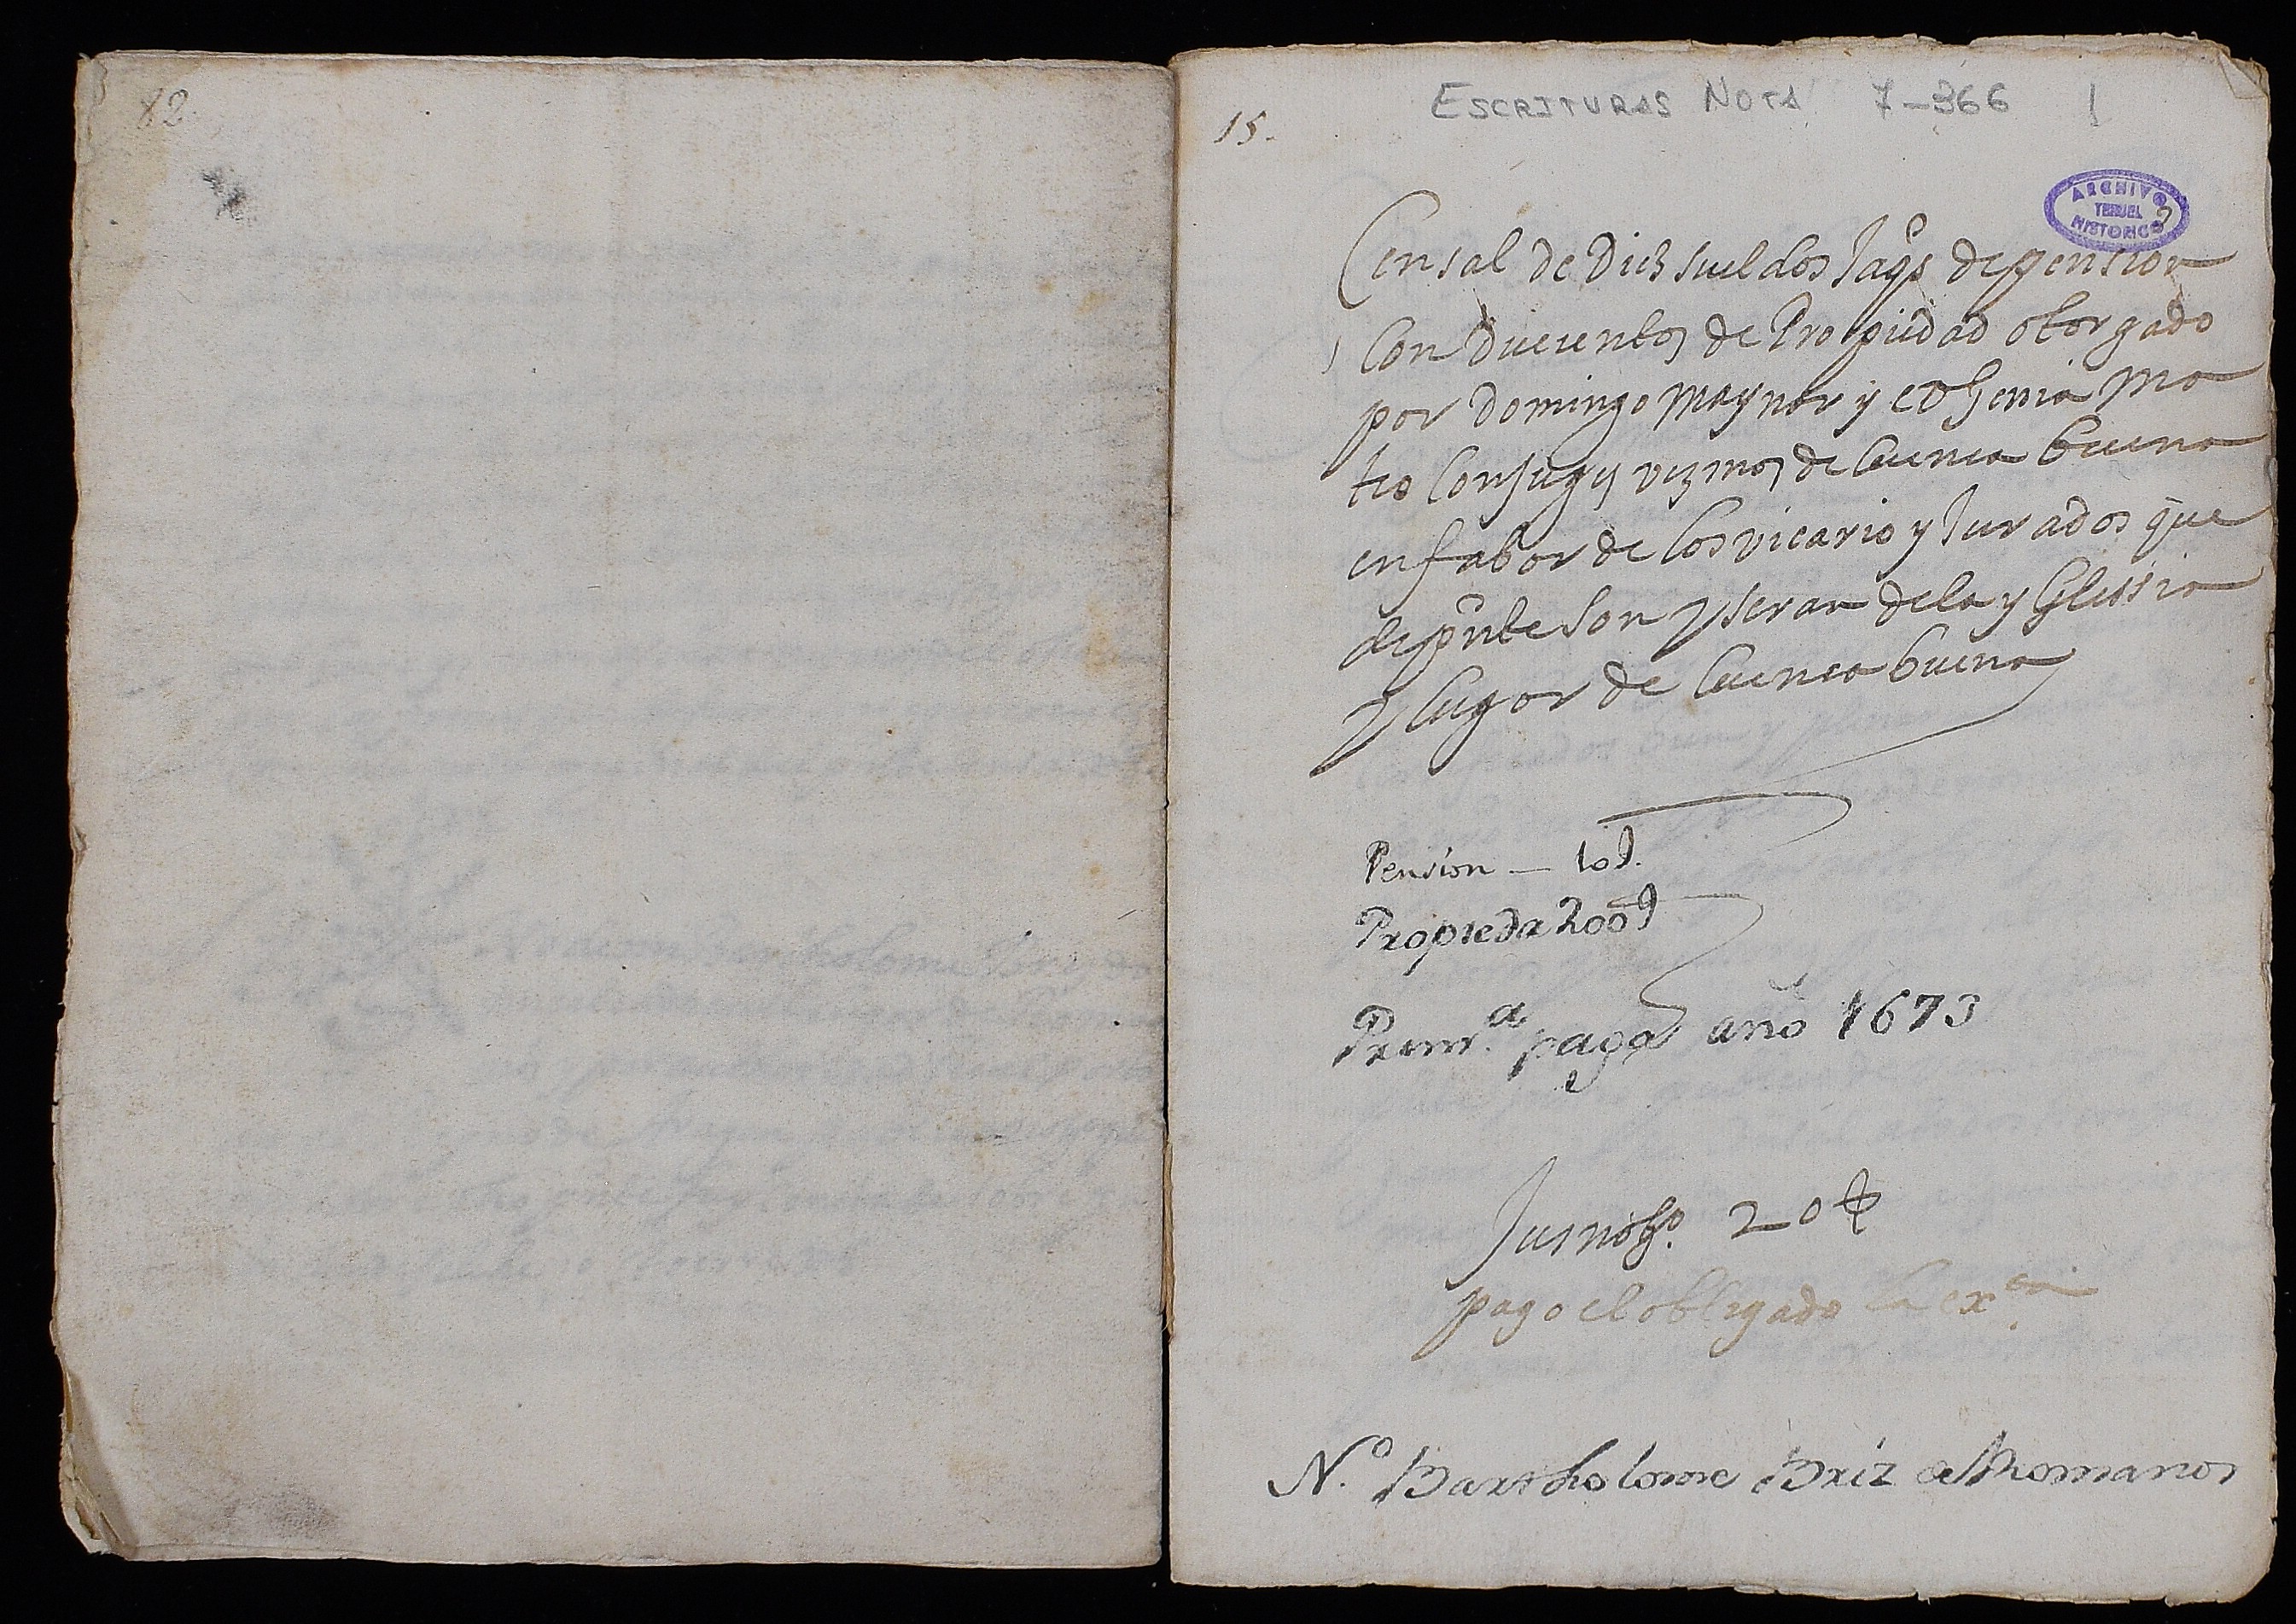 82.
15.
ESCRITURAS NOTA 7-366 1
ARCHIVO
TERUEL
HISTORICO
Censal de Diez sueldos Jaqs de pension
Con Ducientos de Propiedad otorgado
por Domingo Maynar y eugenia Ma
teo Conjuges vezinos de Cuenca buena
en fabor de los vicario y Jurados que
de pnte son y seran de la yglessia
y lugar de Cuenca buena
Pension — 10 s.
Propieda 200 s
Primª. paga año 1673
pago el obligado la exon
N.º Bartholome Briz de Romanos